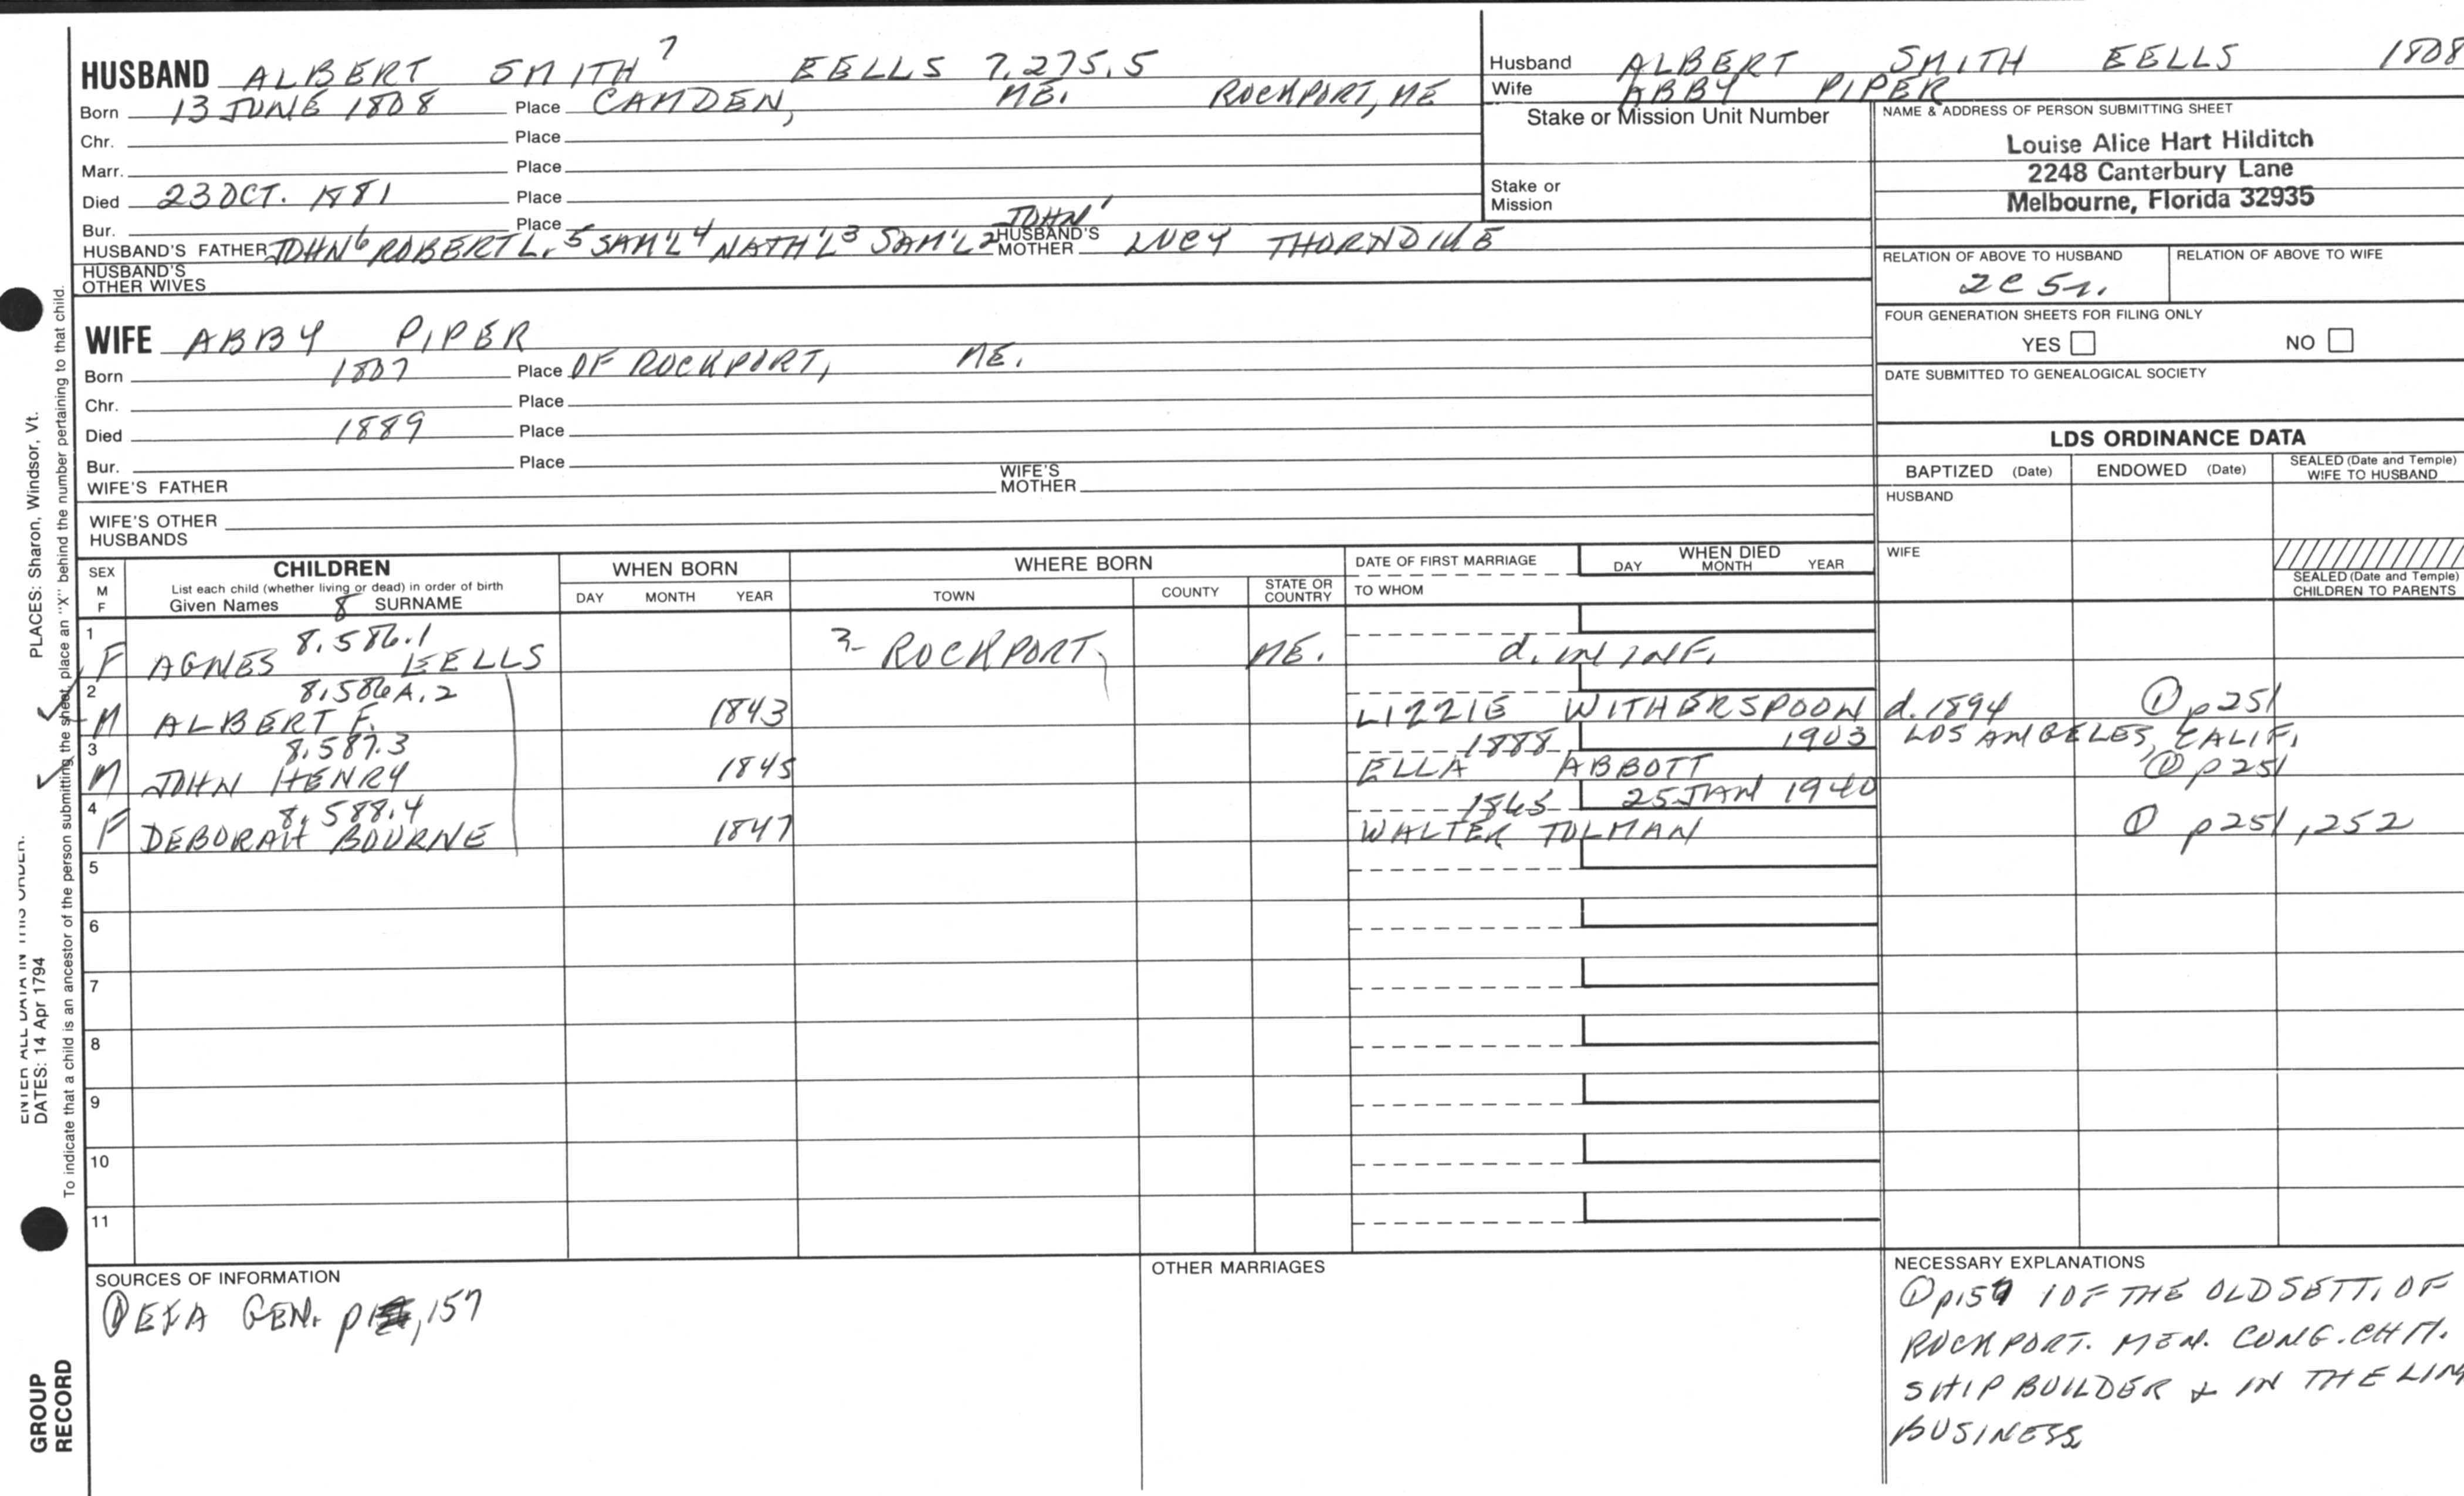 HUSBAND ALBERT SMITH 7 EELLS 7,275.5
Born 13 JUNE 1808 Place CAMDEN, ME. ROCKPORT, ME
Chr. Place
Marr. Place
Died 23 OCT. 1881 Place
Bur. Place
HUSBAND'S FATHER JOHN 6 ROBERT L. 5 SAM'L 4 NATH'L 3 SAM'L 2 JOHN 1 HUSBAND'S MOTHER LUCY THORNDIKE
HUSBAND'S OTHER WIVES
WIFE ABBY PIPER
Born 1807 Place OF ROCKPORT, ME.
Chr. Place
Died 1889 Place
Bur. Place
WIFE'S FATHER WIFE'S MOTHER
WIFE'S OTHER HUSBANDS
Husband ALBERT SMITH EELLS 1808
Wife ABBY PIPER
Stake or Mission Unit Number
Stake or Mission
NAME & ADDRESS OF PERSON SUBMITTING SHEET
Louise Alice Hart Hilditch
2248 Canterbury Lane
Melbourne, Florida 32935
RELATION OF ABOVE TO HUSBAND RELATION OF ABOVE TO WIFE
2C 5r.
FOUR GENERATION SHEETS FOR FILING ONLY
YES NO
DATE SUBMITTED TO GENEALOGICAL SOCIETY
LDS ORDINANCE DATA
BAPTIZED (Date) ENDOWED (Date) SEALED (Date and Temple) WIFE TO HUSBAND
HUSBAND
WIFE
SEALED (Date and Temple) CHILDREN TO PARENTS
SEX M F
CHILDREN
List each child (whether living or dead) in order of birth
Given Names 8 SURNAME
WHEN BORN
DAY MONTH YEAR
WHERE BORN
TOWN COUNTY STATE OR COUNTRY
DATE OF FIRST MARRIAGE
TO WHOM
WHEN DIED
DAY MONTH YEAR
1 8,586.1
F AGNES EELLS 3- ROCKPORT, ME. d. IN INF.
2 8,586A.2
M ALBERT F. 1843 LIZZIE WITHERSPOON d. 1894 ① p251
3 8,587.3 1888 1903 LOS ANGELES, CALIF.
M JOHN HENRY 1845 ELLA ABBOTT ① p251
4 8,588.4 1865 25 JAN 1940
F DEBORAH BOURNE 1847 WALTER TOLMAN ① p251, 252
5
6
7
8
9
10
11
SOURCES OF INFORMATION
① GEN. 157
OTHER MARRIAGES
NECESSARY EXPLANATIONS
① 1 OF THE OLD SETT. OF
ROCKPORT. MEM. CONG. CHH.
SHIP BUILDER & IN THE LIM
BUSINESS
PLACES: Sharon, Windsor, Vt.
ENTER ALL DATA IN THIS ORDER.
DATES: 14 Apr 1794
To indicate that a child is an ancestor of the person submitting the sheet, place an "X" behind the number pertaining to that child.
GROUP
RECORD